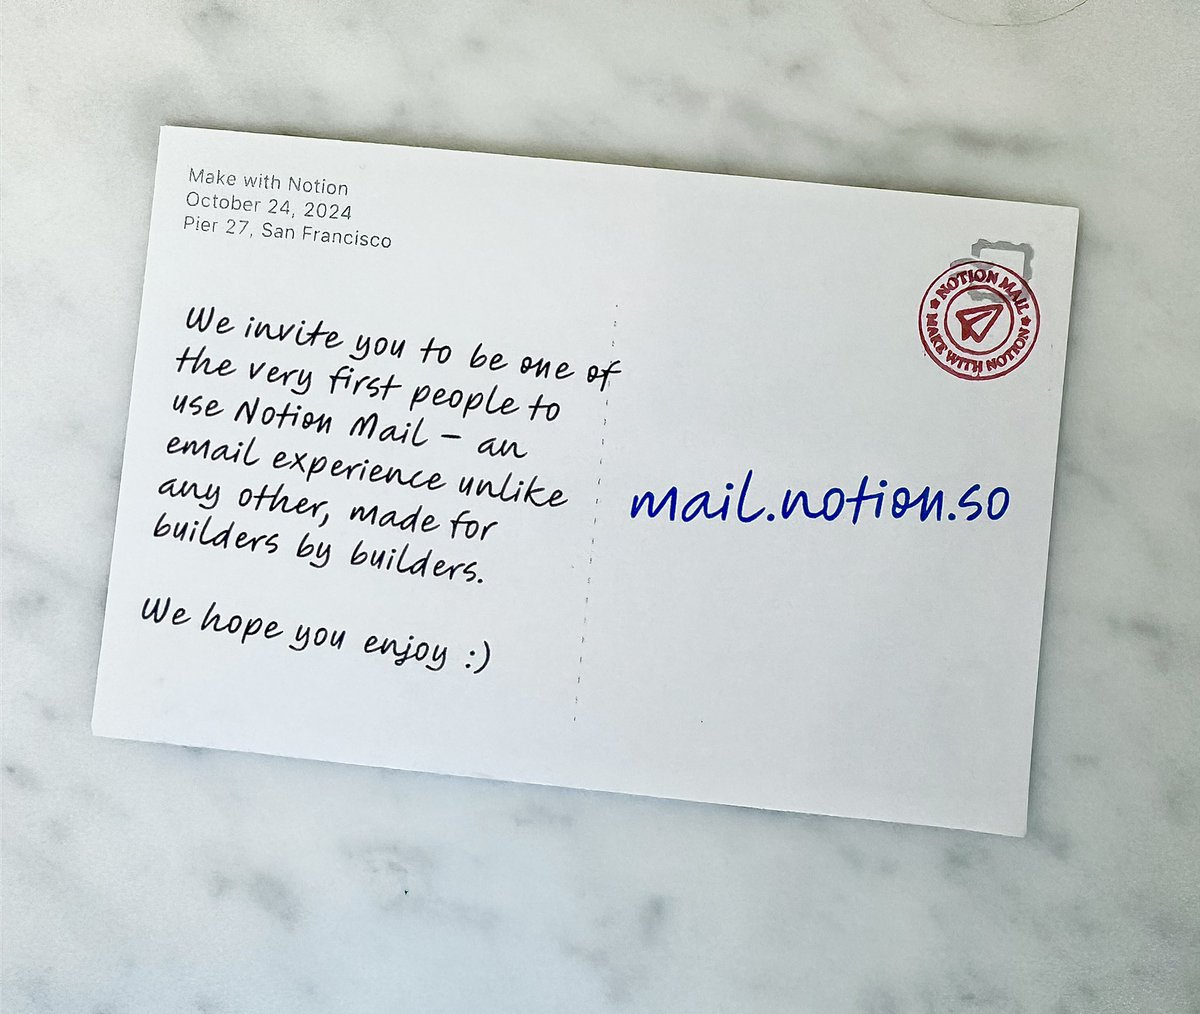 Make with Notion
October 24, 2024
Pier 27, San Francisco
We invite you to be one of
the very first people to
use Notion Mail – an
email experience unlike
any other, made for
builders by builders.
We hope you enjoy :)
NOTION MAIL
MAKE WITH NOTION
mail.notion.so